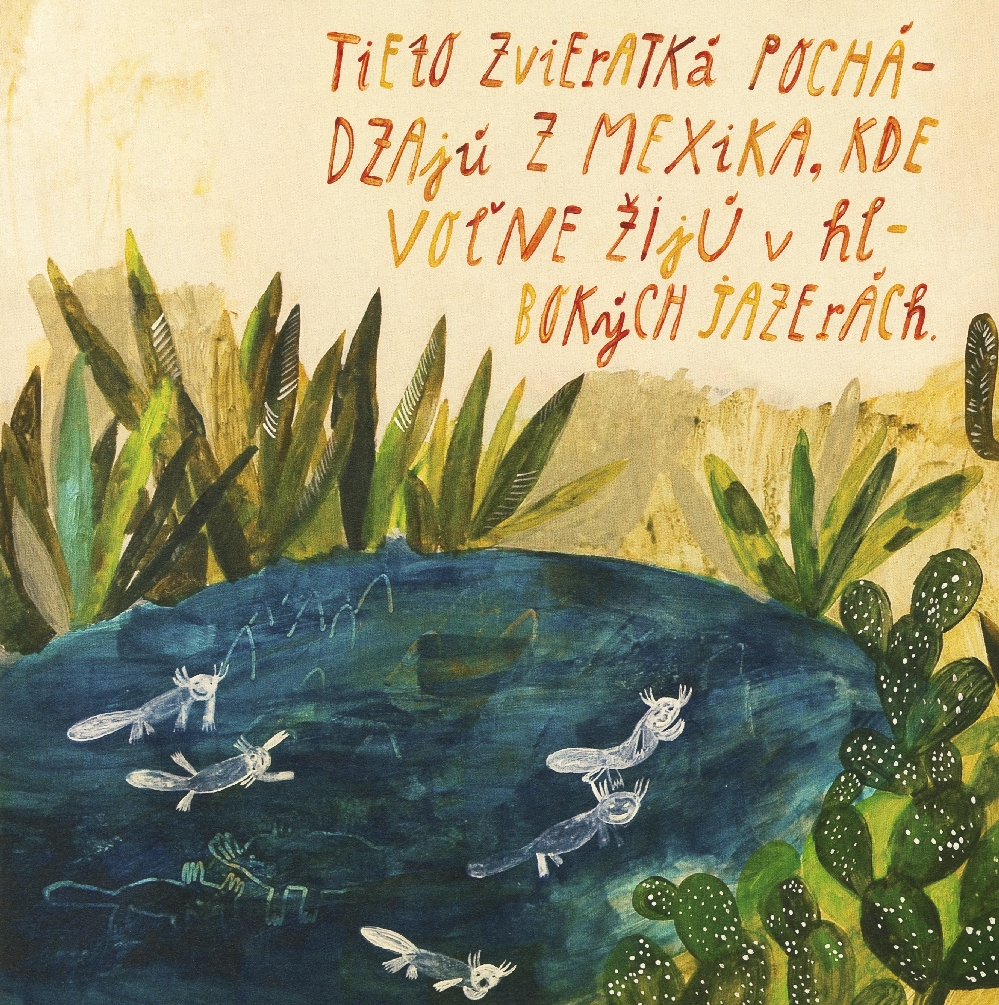 TiETO ZviErATKá POCHÁ-
DZAjú Z MEXiKA, KDE
VOľNE ŽIjÚ v hl-
BOKýCH JAZErÁCh.